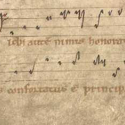 ichi autē nimis honora
confortatus ē princip